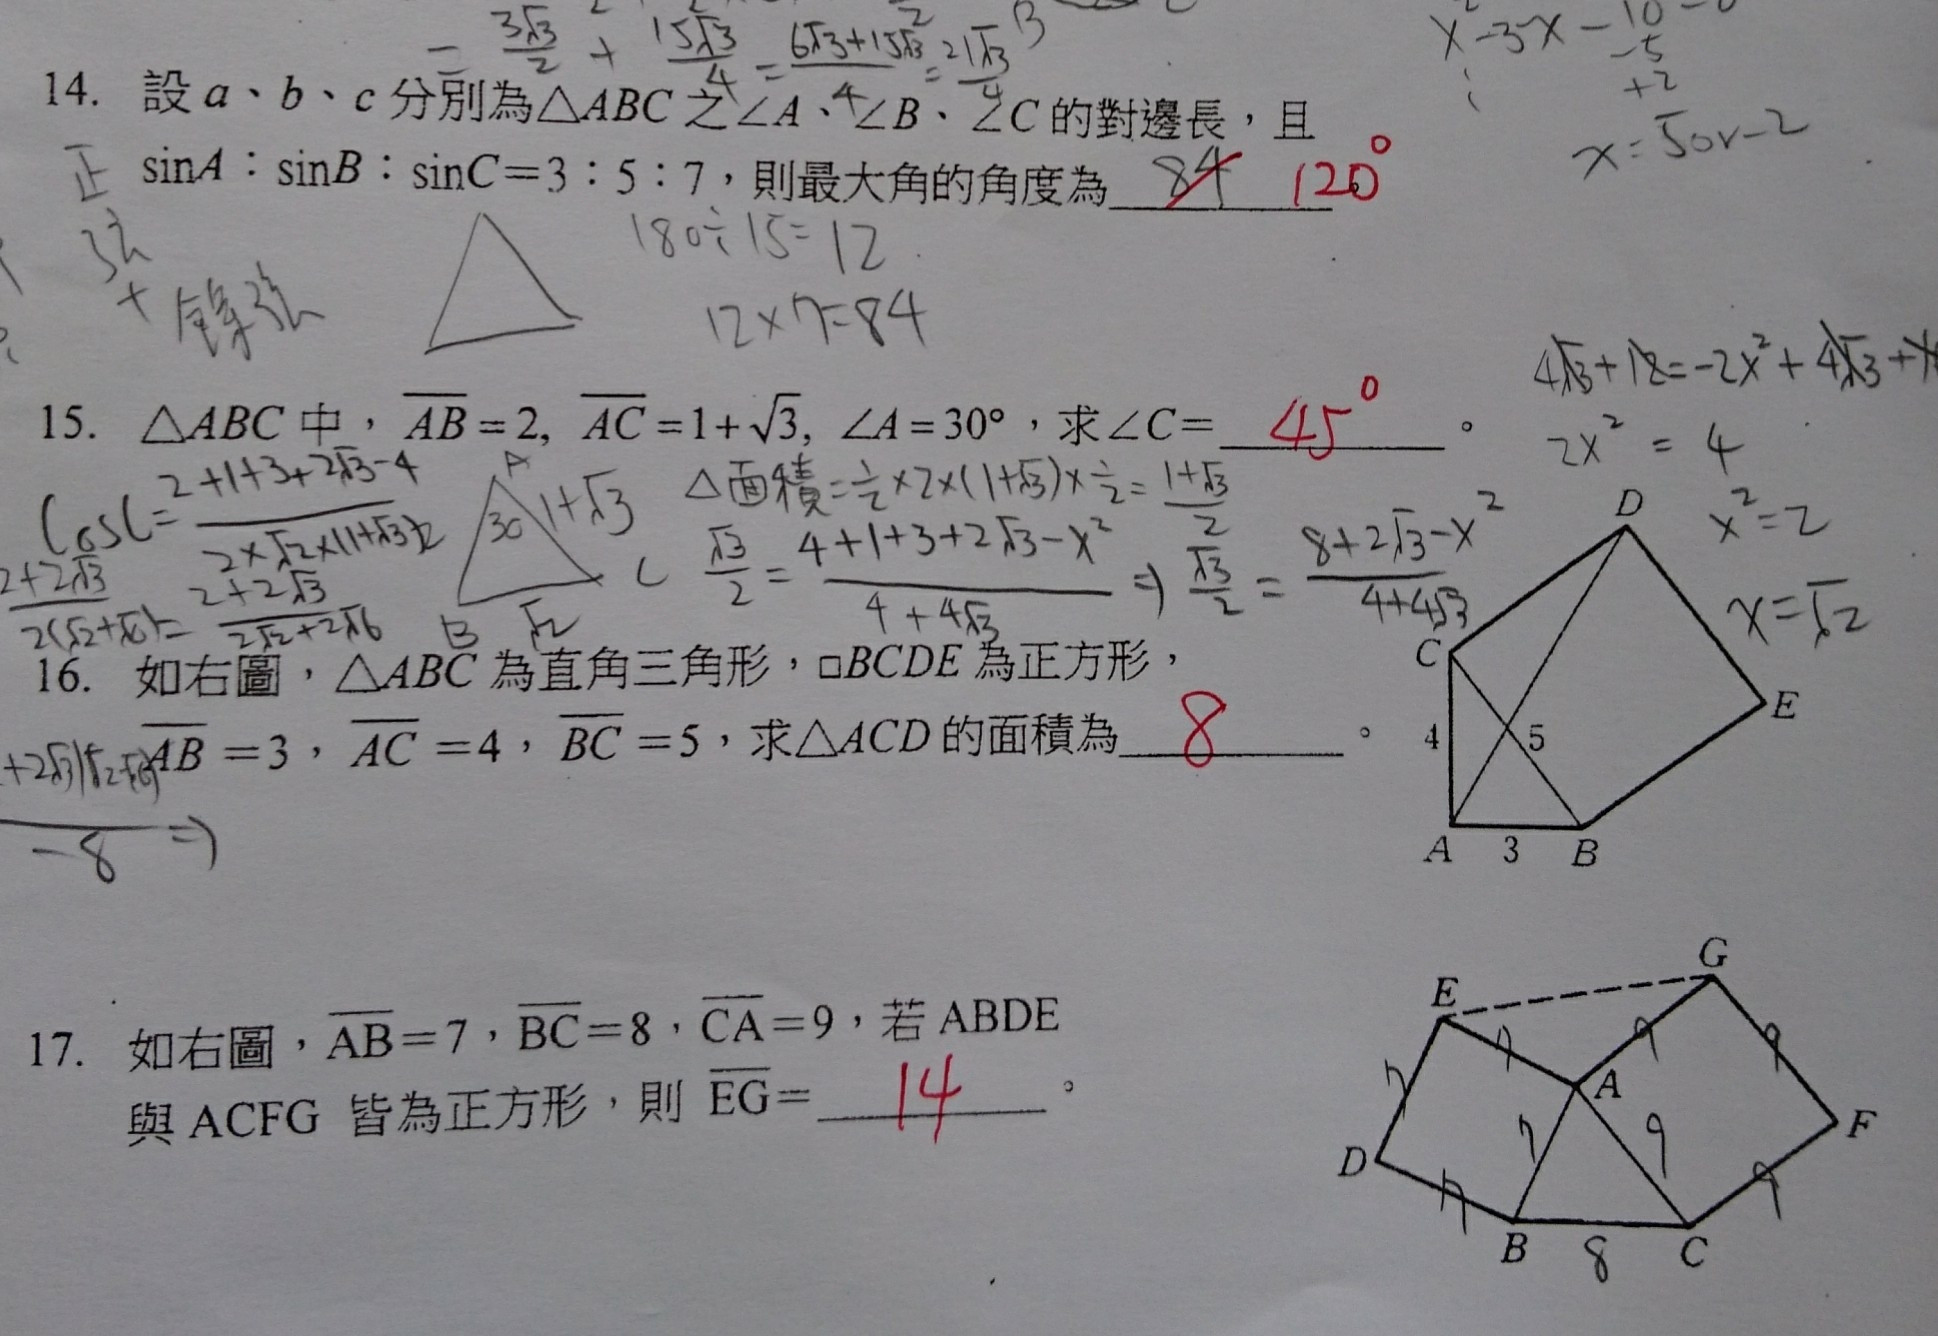 = 3√3/2 + 15√3/4 = 6√3+15√3/4 = 21√3/4
B
x²-3x-10=0
-5
+2
x=5or-2
14. 設 a、b、c 分別為△ABC 之∠A、∠B、∠C 的對邊長，且
sinA：sinB：sinC=3：5：7，則最大角的角度為 84 120°
正弦
+
餘弦
180÷15=12
12×7=84
15. △ABC 中， AB=2, AC=1+√3, ∠A=30°，求∠C= 45° 。
4√3+12=-2x²+4√3+
2x²=4
x²=2
x=√2
CosC= 2+1+3+2√3-4 / 2×√2×(1+√3)
2+2√3 / 2(√2+√6) = 2+2√3 / 2√2+2√6
A
30
1+√3
B √2 C
△面積=½×2×(1+√3)×½= 1+√3/2
√3/2 = 4+1+3+2√3-x² / 4+4√3 ⇒ √3/2 = 8+2√3-x² / 4+4√3
16. 如右圖，△ABC 為直角三角形，□BCDE 為正方形，
AB=3，AC=4，BC=5，求△ACD 的面積為 8 。
-8 ⇒
D
C
E
4 5
A 3 B
17. 如右圖，AB=7，BC=8，CA=9，若 ABDE
與 ACFG 皆為正方形，則 EG= 14 。
G
E
7 9 9
7 A
7 9 F
D
7 9
B 8 C